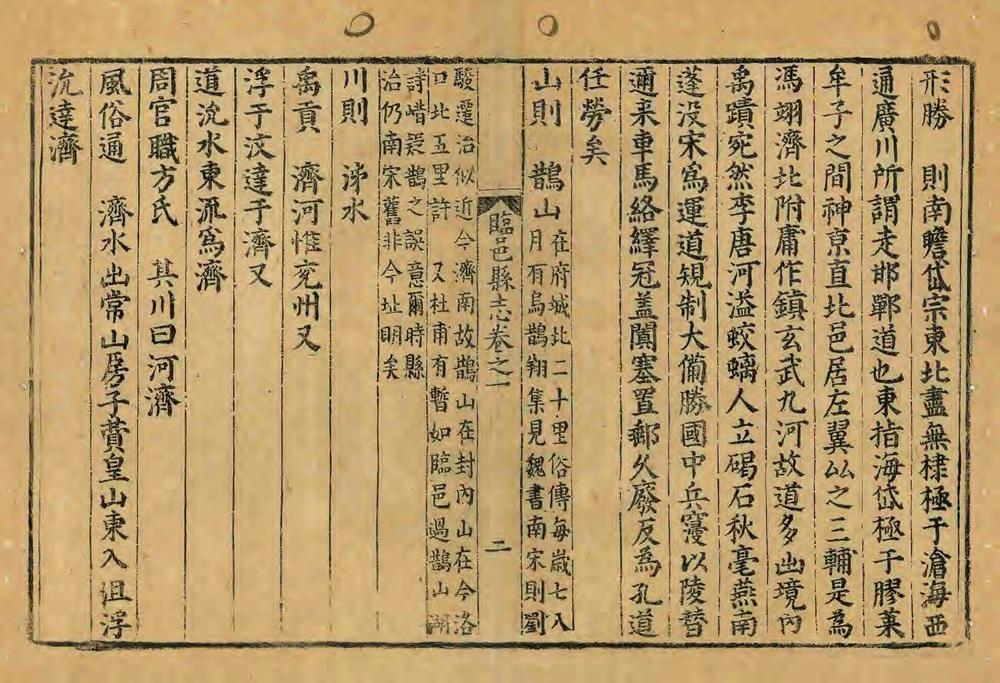 形勝　則南瞻岱宗東北盡無棣極于滄海西
通廣川所謂走邯鄲道也東指海岱極于膠萊
牟子之間神京直北邑居左翼公之三輔是為
馮翊濟北附庸作鎮玄武九河故道多出境內
禹蹟宛然李唐河溢蛟螭人立碣石秋毫燕南
蓬没宋為運道規制大備勝國中兵寖以陵替
邇来車馬絡繹冠盖闐塞置郵久廢反為孔道
任勞矣
山則　鵲山在府城北二十里俗傳每歲七八
月有烏鵲翔集見魏書南宋則劉
臨邑縣志卷之一　二
駿遷治似近今濟南故鵲山在封內山在今洛
口北五里許　又杜甫有暫如臨邑過鵲山湖
詩㫺罢鵲之誤意爾時縣
治仍南宋舊非今址明矣
川則　泲水
禹貢　濟河惟兗州又
浮于汶達于濟又
道沇水東流為濟
周官職方氏　其川曰河濟
風俗通　濟水出常山房子贊皇山東入沮浮
沇達濟